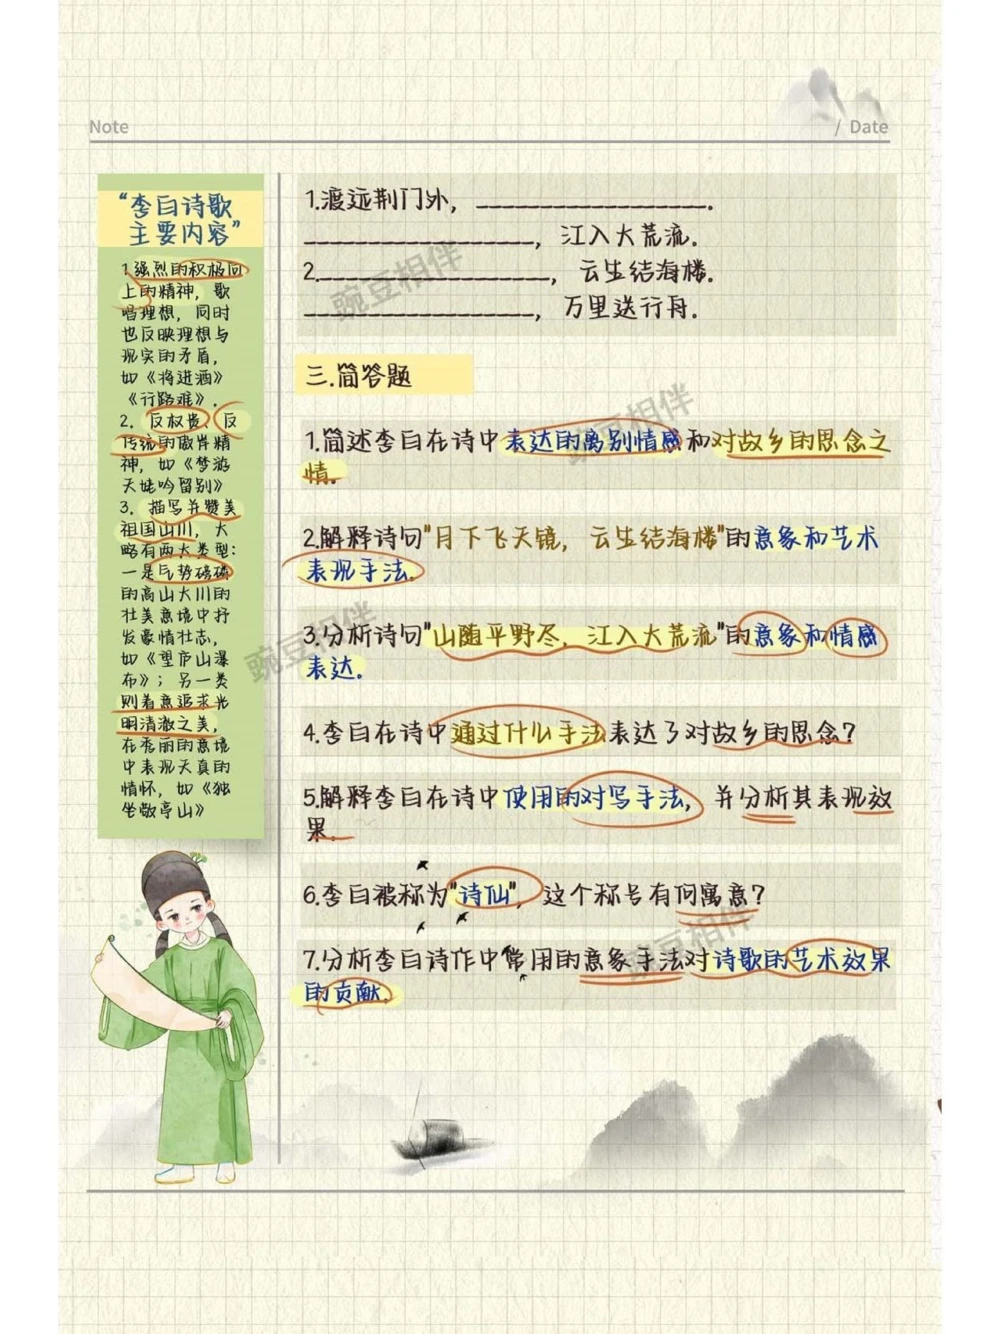 Note
/ Date
“李白诗歌
主要内容”
1.强烈的积极向
上的精神，歌
唱理想，同时
也反映理想与
现实的矛盾，
如《将进酒》
《行路难》.
2. 反权贵、反
传统的傲岸精
神，如《梦游
天姥吟留别》
3. 描写并赞美
祖国山川，大
略有两大类型：
一是气势磅礴
的高山大川的
壮美意境中抒
发豪情壮志，
如《望庐山瀑
布》；另一类
则着意追求光
明清澈之美，
在秀丽的意境
中表现天真的
情怀，如《独
坐敬亭山》
1.渡远荆门外，____________________.
____________________，江入大荒流.
2.____________________，云生结海楼.
____________________，万里送行舟.
三.简答题
1.简述李白在诗中表达的离别情感和对故乡的思念之
情.
2.解释诗句"月下飞天镜，云生结海楼"的意象和艺术
表现手法.
3.分析诗句"山随平野尽，江入大荒流"的意象和情感
表达.
4.李白在诗中通过什么手法表达了对故乡的思念?
5.解释李白在诗中使用的对写手法，并分析其表现效
果.
6.李白被称为"诗仙"，这个称号有何寓意?
7.分析李白诗作中常用的意象手法对诗歌的艺术效果
的贡献.
豌豆相伴
豌豆相伴
豌豆相伴
豌豆相伴